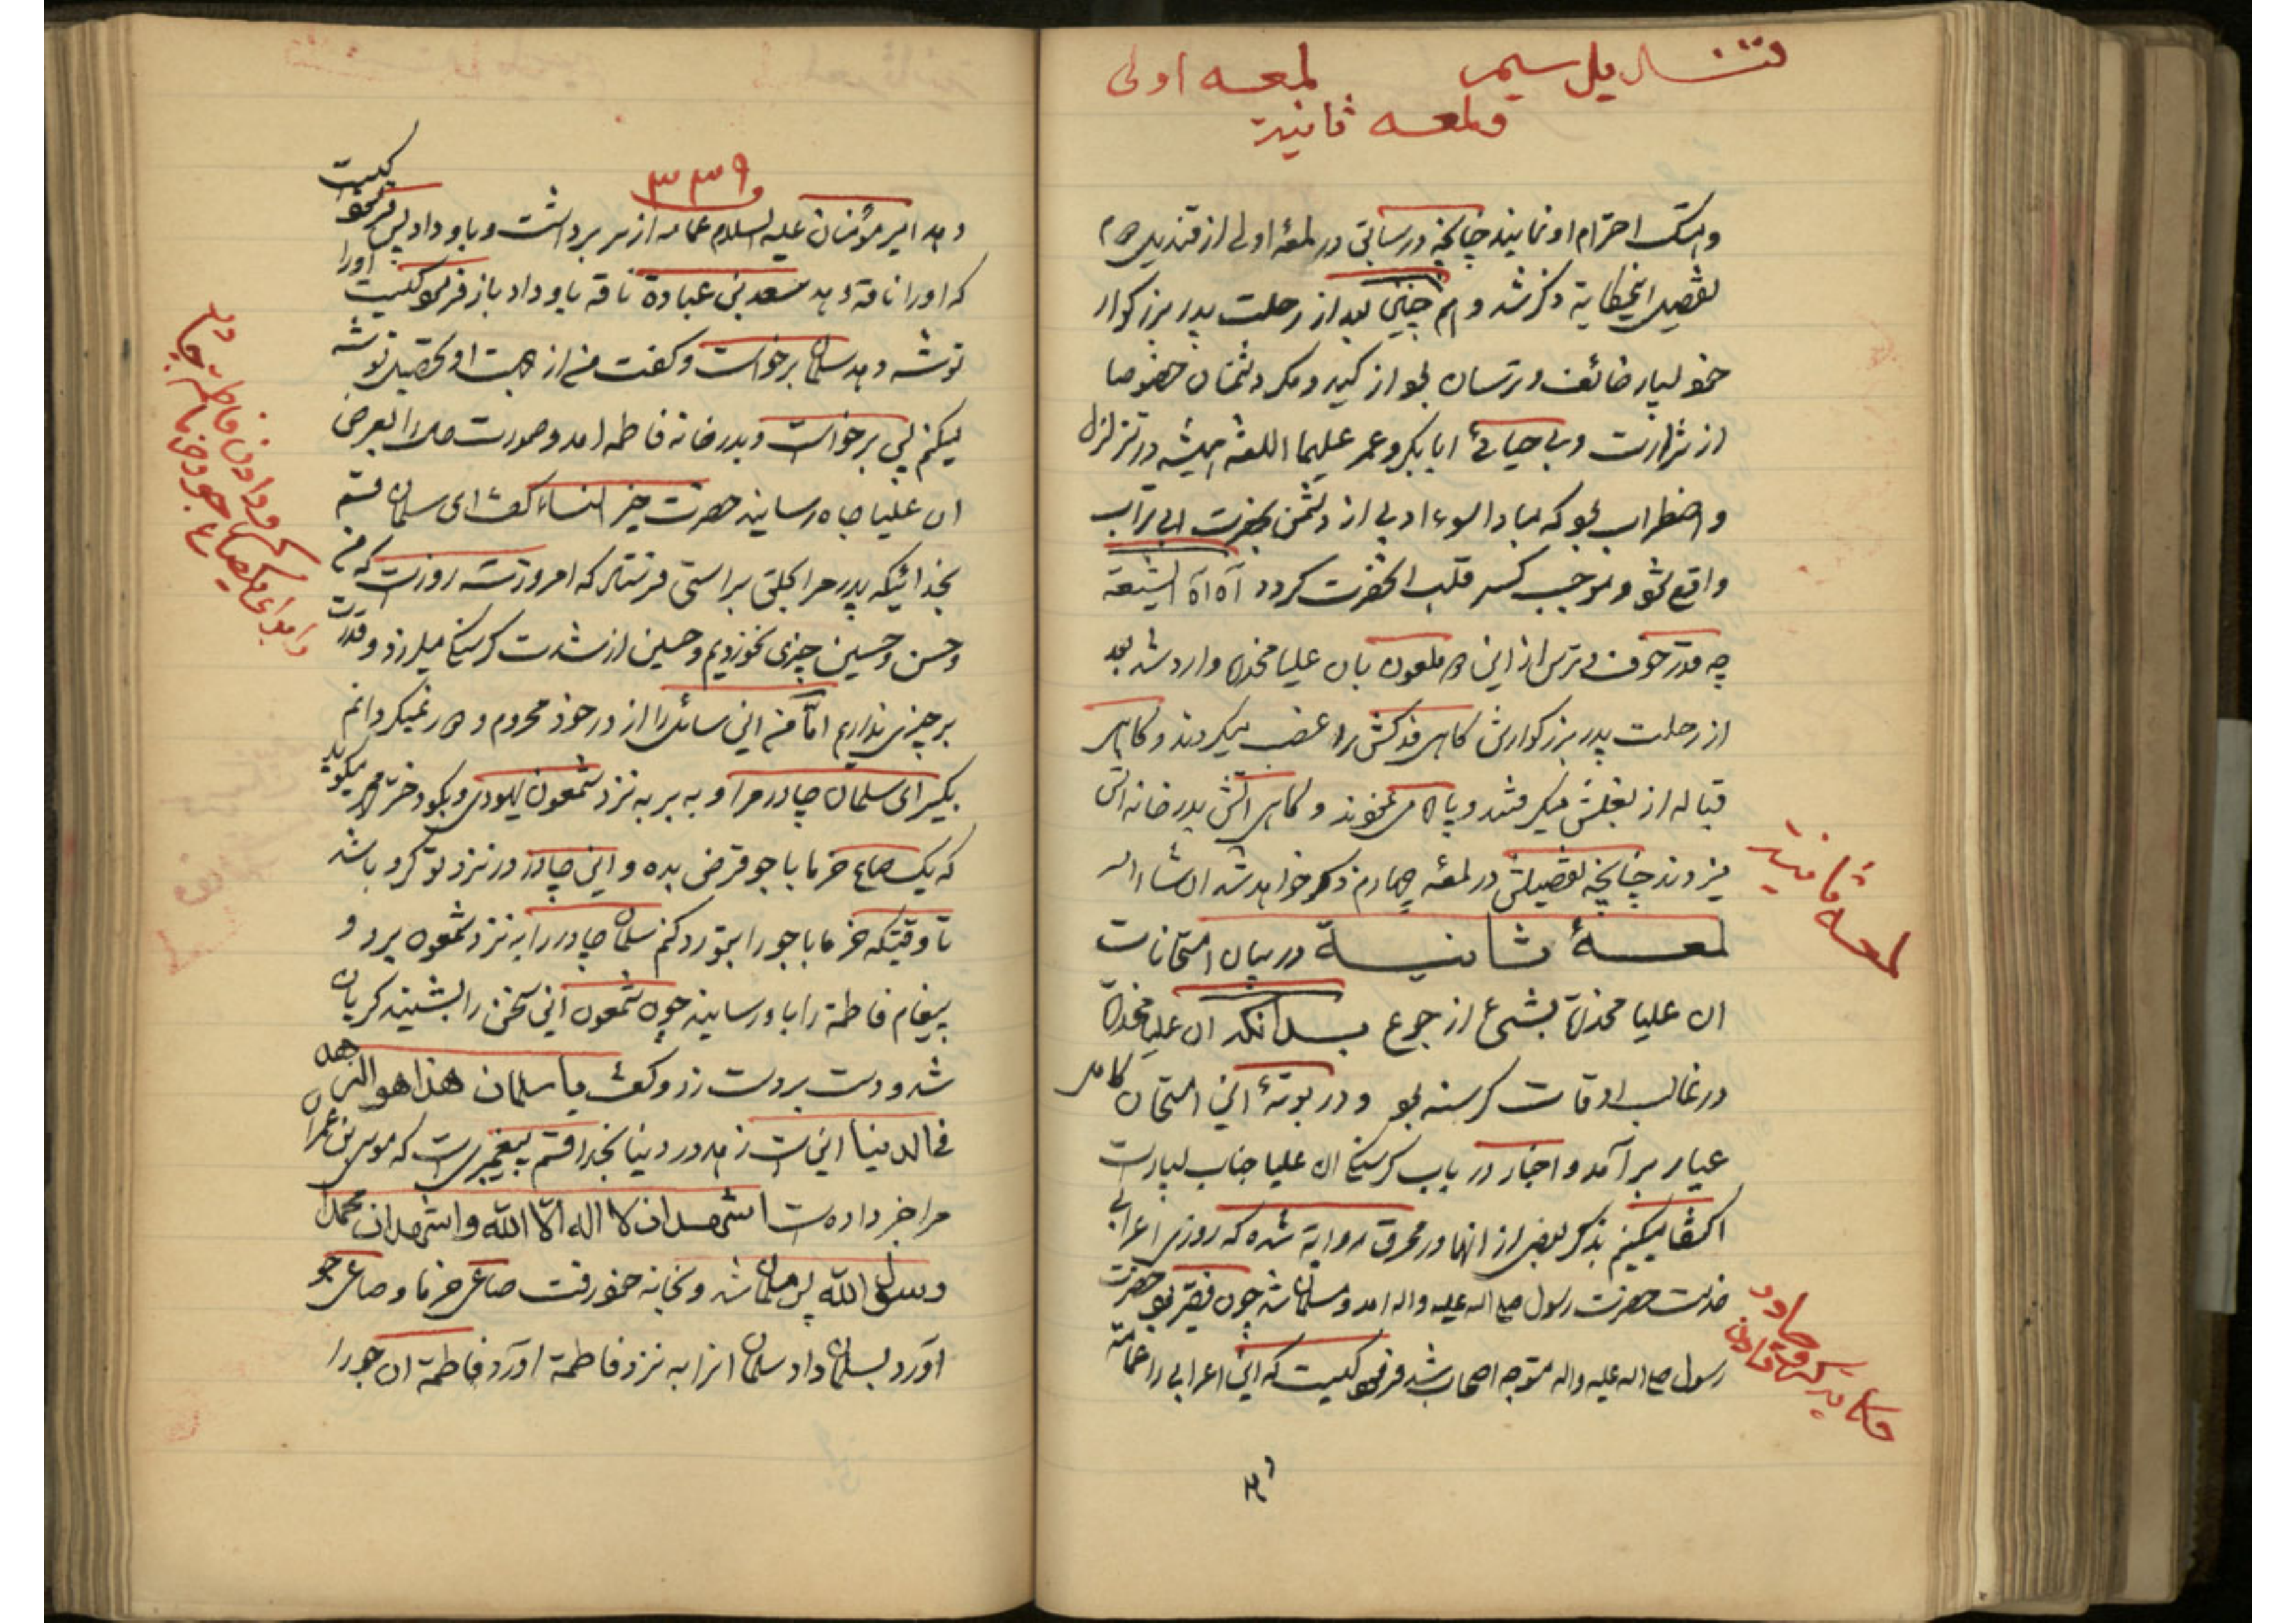 قندیل سیم لمعه اولی
ولمعه ثانیة
وهتک احترام او نمایند چنانچه در سابق در لمعهٔ اولی از قندیل دهم
تفصیل اینحکایة ذکر شد و هم چنین بعد از رحلت پدر بزرکوار
خود بسیار خائف و ترسان بود از کید و مکر دشمنان خصوصا
از شرارت و بی حیائی ابا بکر و عمر علیهما اللعنة همیشه در تزلزل
و اضطراب بود که مبادا سوء ادبی از دشمن بحضرت ابی تراب
واقع شود و موجب کسر قلب آنحضرت کردد آه آه الشیعة
چه قدر خوف و ترس از این دو ملعون بان علیا مخدره وارد شد بعد
از رحلت پدر بزرکوارش کاهی فدکش را غصب میکردند و کاهی
قباله از بغلش میکرفتند و پاره می نمودند و کاهی اتش بدر خانه اش
میزدند چنانچه تفصیلش در لمعهٔ چهارم ذکر خواهد شد ان شاء الله
لمعه ثانیة
لمعـــهٔ ثـانیـــة در بیان امتحانات
ان علیا مخدره بشیء از جوع بدانکه ان علیا مخدره
در غالب اوقات کرسنه بود و در بوتهٔ این امتحان کامل
عیار بر آمد و اخبار در باب کرسنکی ان علیا جناب بسیار است
اکتفا میکنیم بذکر بعضی از انها در محرق روایة شده که روزی اعرابی
خدمت حضرت رسول صلی الله علیه واله امد و مسلمان شد چون فقیر بود حضرت
رسول صلی الله علیه واله متوجه اصحاب شد فرمود کیست که این اعرابی را عمامة
۳۳۹
دهد امیر مؤمنان علیه السلام عمامه از سر برداشت و باو داد پس فرمود کیست
که او را ناقة دهد سعد بن عبادة ناقه باو داد باز فرمود کیست او را
توشه دهد سلمان برخواست و کفت من از همت او تحصیل توشه
میکنم پس برخواست و بدر خانه فاطمه امد و صورت حال را بعرض
ان علیا جاه رسانید حضرت خیر النساء کفت ای سلمان قسم
بخدائیکه پدر مرا بحق براستی فرستاد که امروز سه روز است که من
و حسن و حسین چیزی نخوردیم و حسین از شدت کرسنکی میلرزد و قدرت
بر چیزی نداریم امّا من این سائل را از در خود محروم و رد نمیکردانم
بکیر ای سلمان چادر مرا و به بر به نزد شمعون یهودی و بکو دختر محمد میکوید
که یک صاع خرما با جو قرض بده و این چادر در نزد تو کرو باشد
تا وقتیکه خرما با جو را بتو رد کنم سلمان چادر را به نزد شمعون برد و
پیغام فاطمة را باو رسانید چون شمعون این سخن را بشنید کریان
شد و دست بر دست زد و کفت یا سلمان هذا هو الزهد
فی الدنیا این است زهد در دنیا بخدا قسم پیغمبری است که موسی بن عمران
مرا خبر داده است اشهد ان لا اله الّا الله واشهد ان محمدا
رسول الله پس مسلمان شد و بخانه خود رفت صاعی خرما و صاعی جو
آورد بسلمان داد سلمان انرا به نزد فاطمة اورد فاطمة ان جو را